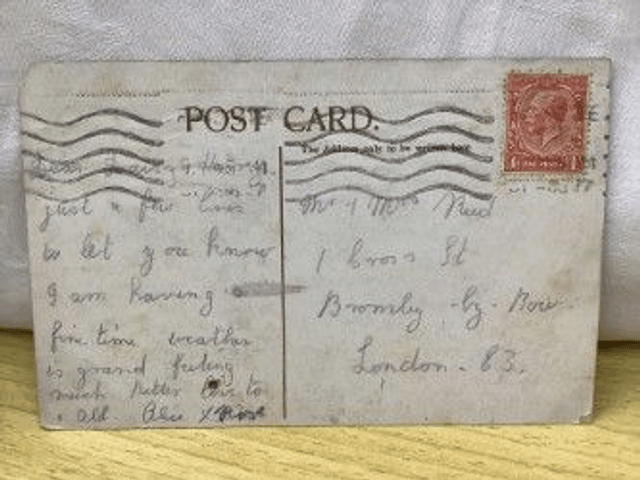 POST CARD.
The Address only to be written here
Dear
just a few lines
to let you know
I am having
fine time weather
is grand feeling
much better love to
all.
Mr & Mrs
1 Cross St
Bromley-by-Bow
London. E3.